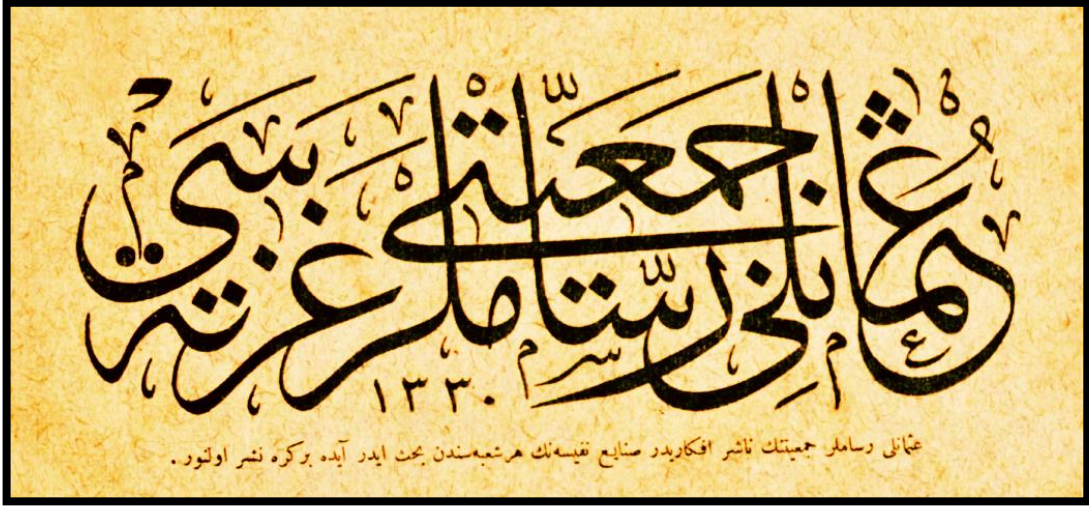 عثمانلی رسّاملر جمعیّتی غزته سی
١٣٣٠
عثمانلی رساملر جمعیتنك ناشر افكاریدر صنایع نفیسه‌نك هر شعبه‌سندن بحث ایدر آیده بر كره نشر اولنور .